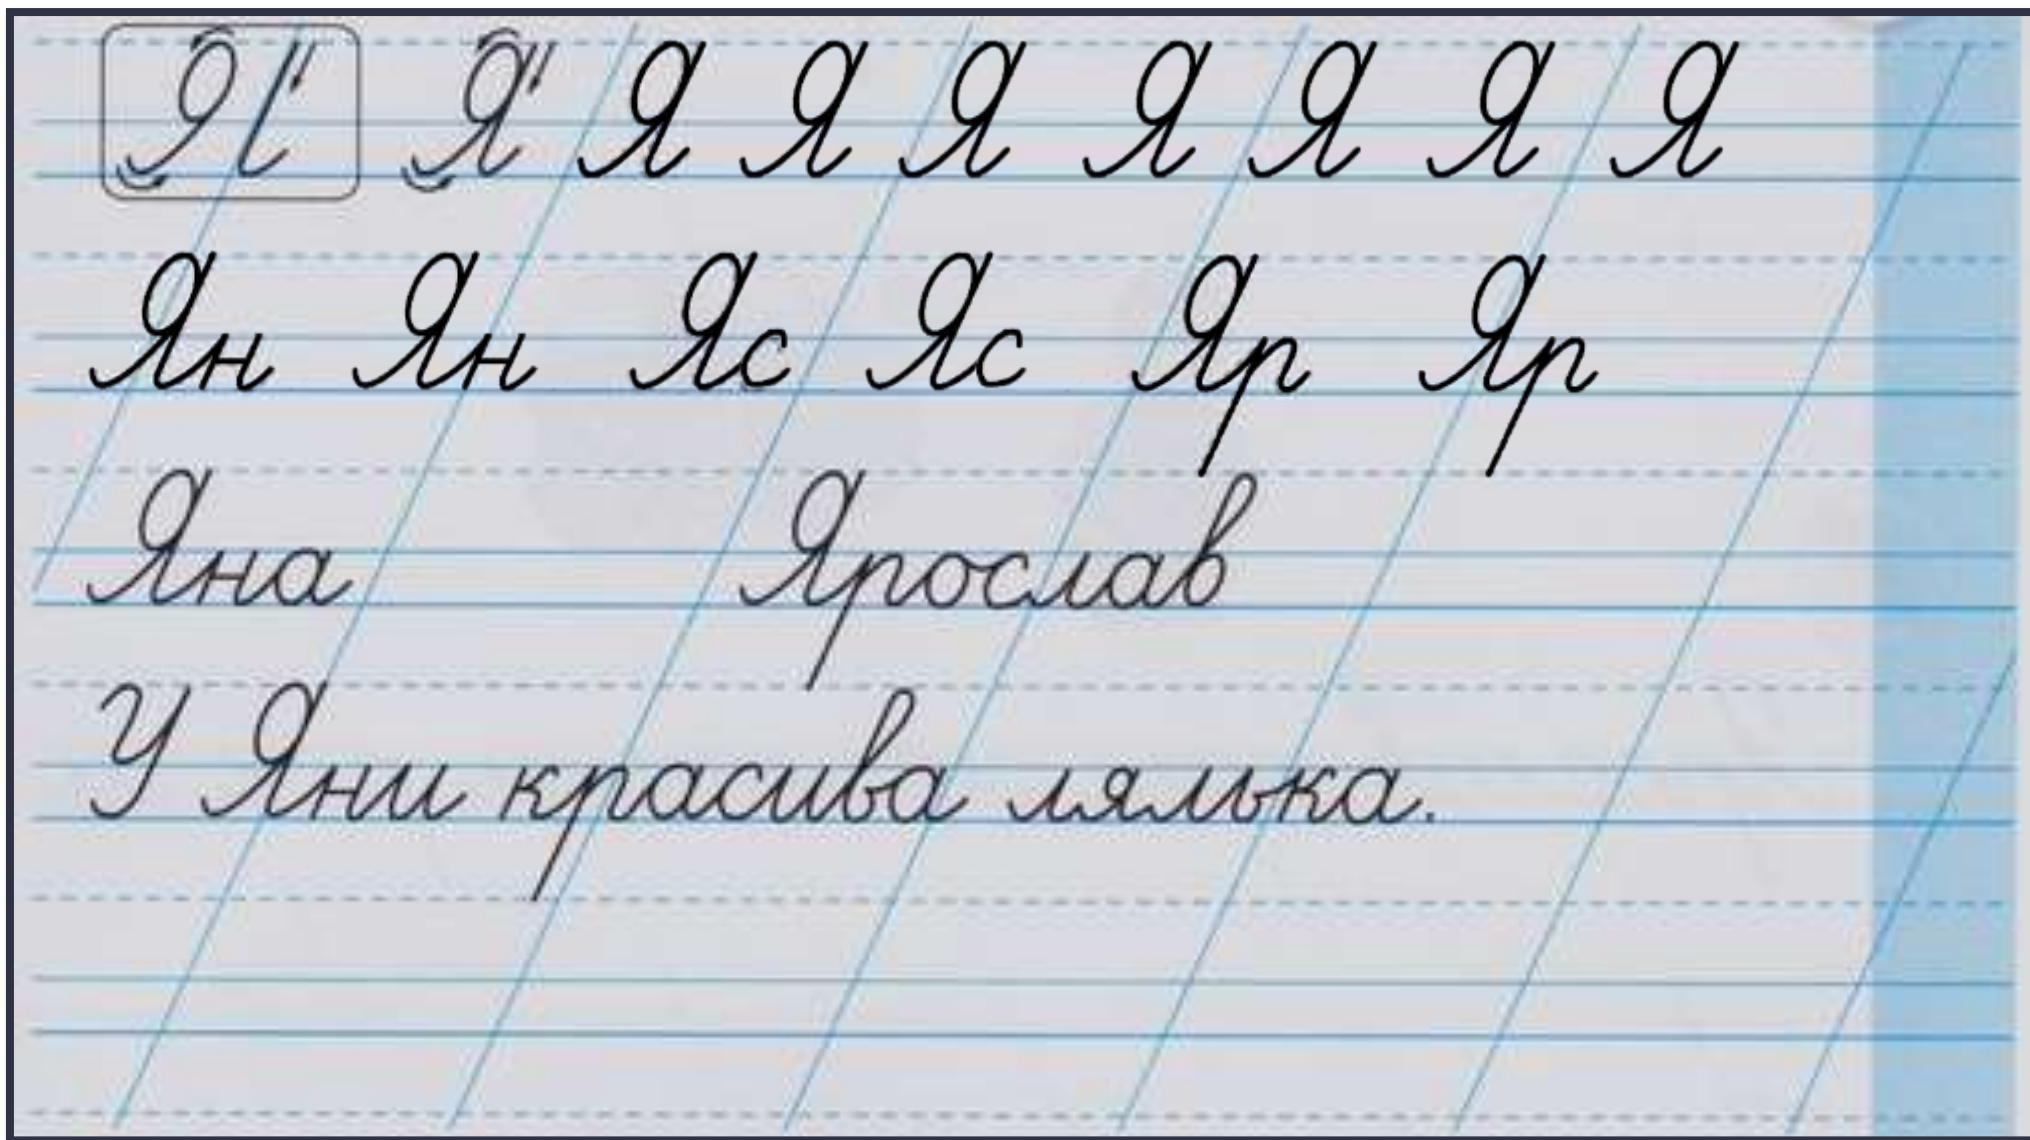 Я Я Я Я Я Я Я Я Я
Ян Ян Яс Яс Яр Яр
Яна Ярослав
У Яни красива лялька.